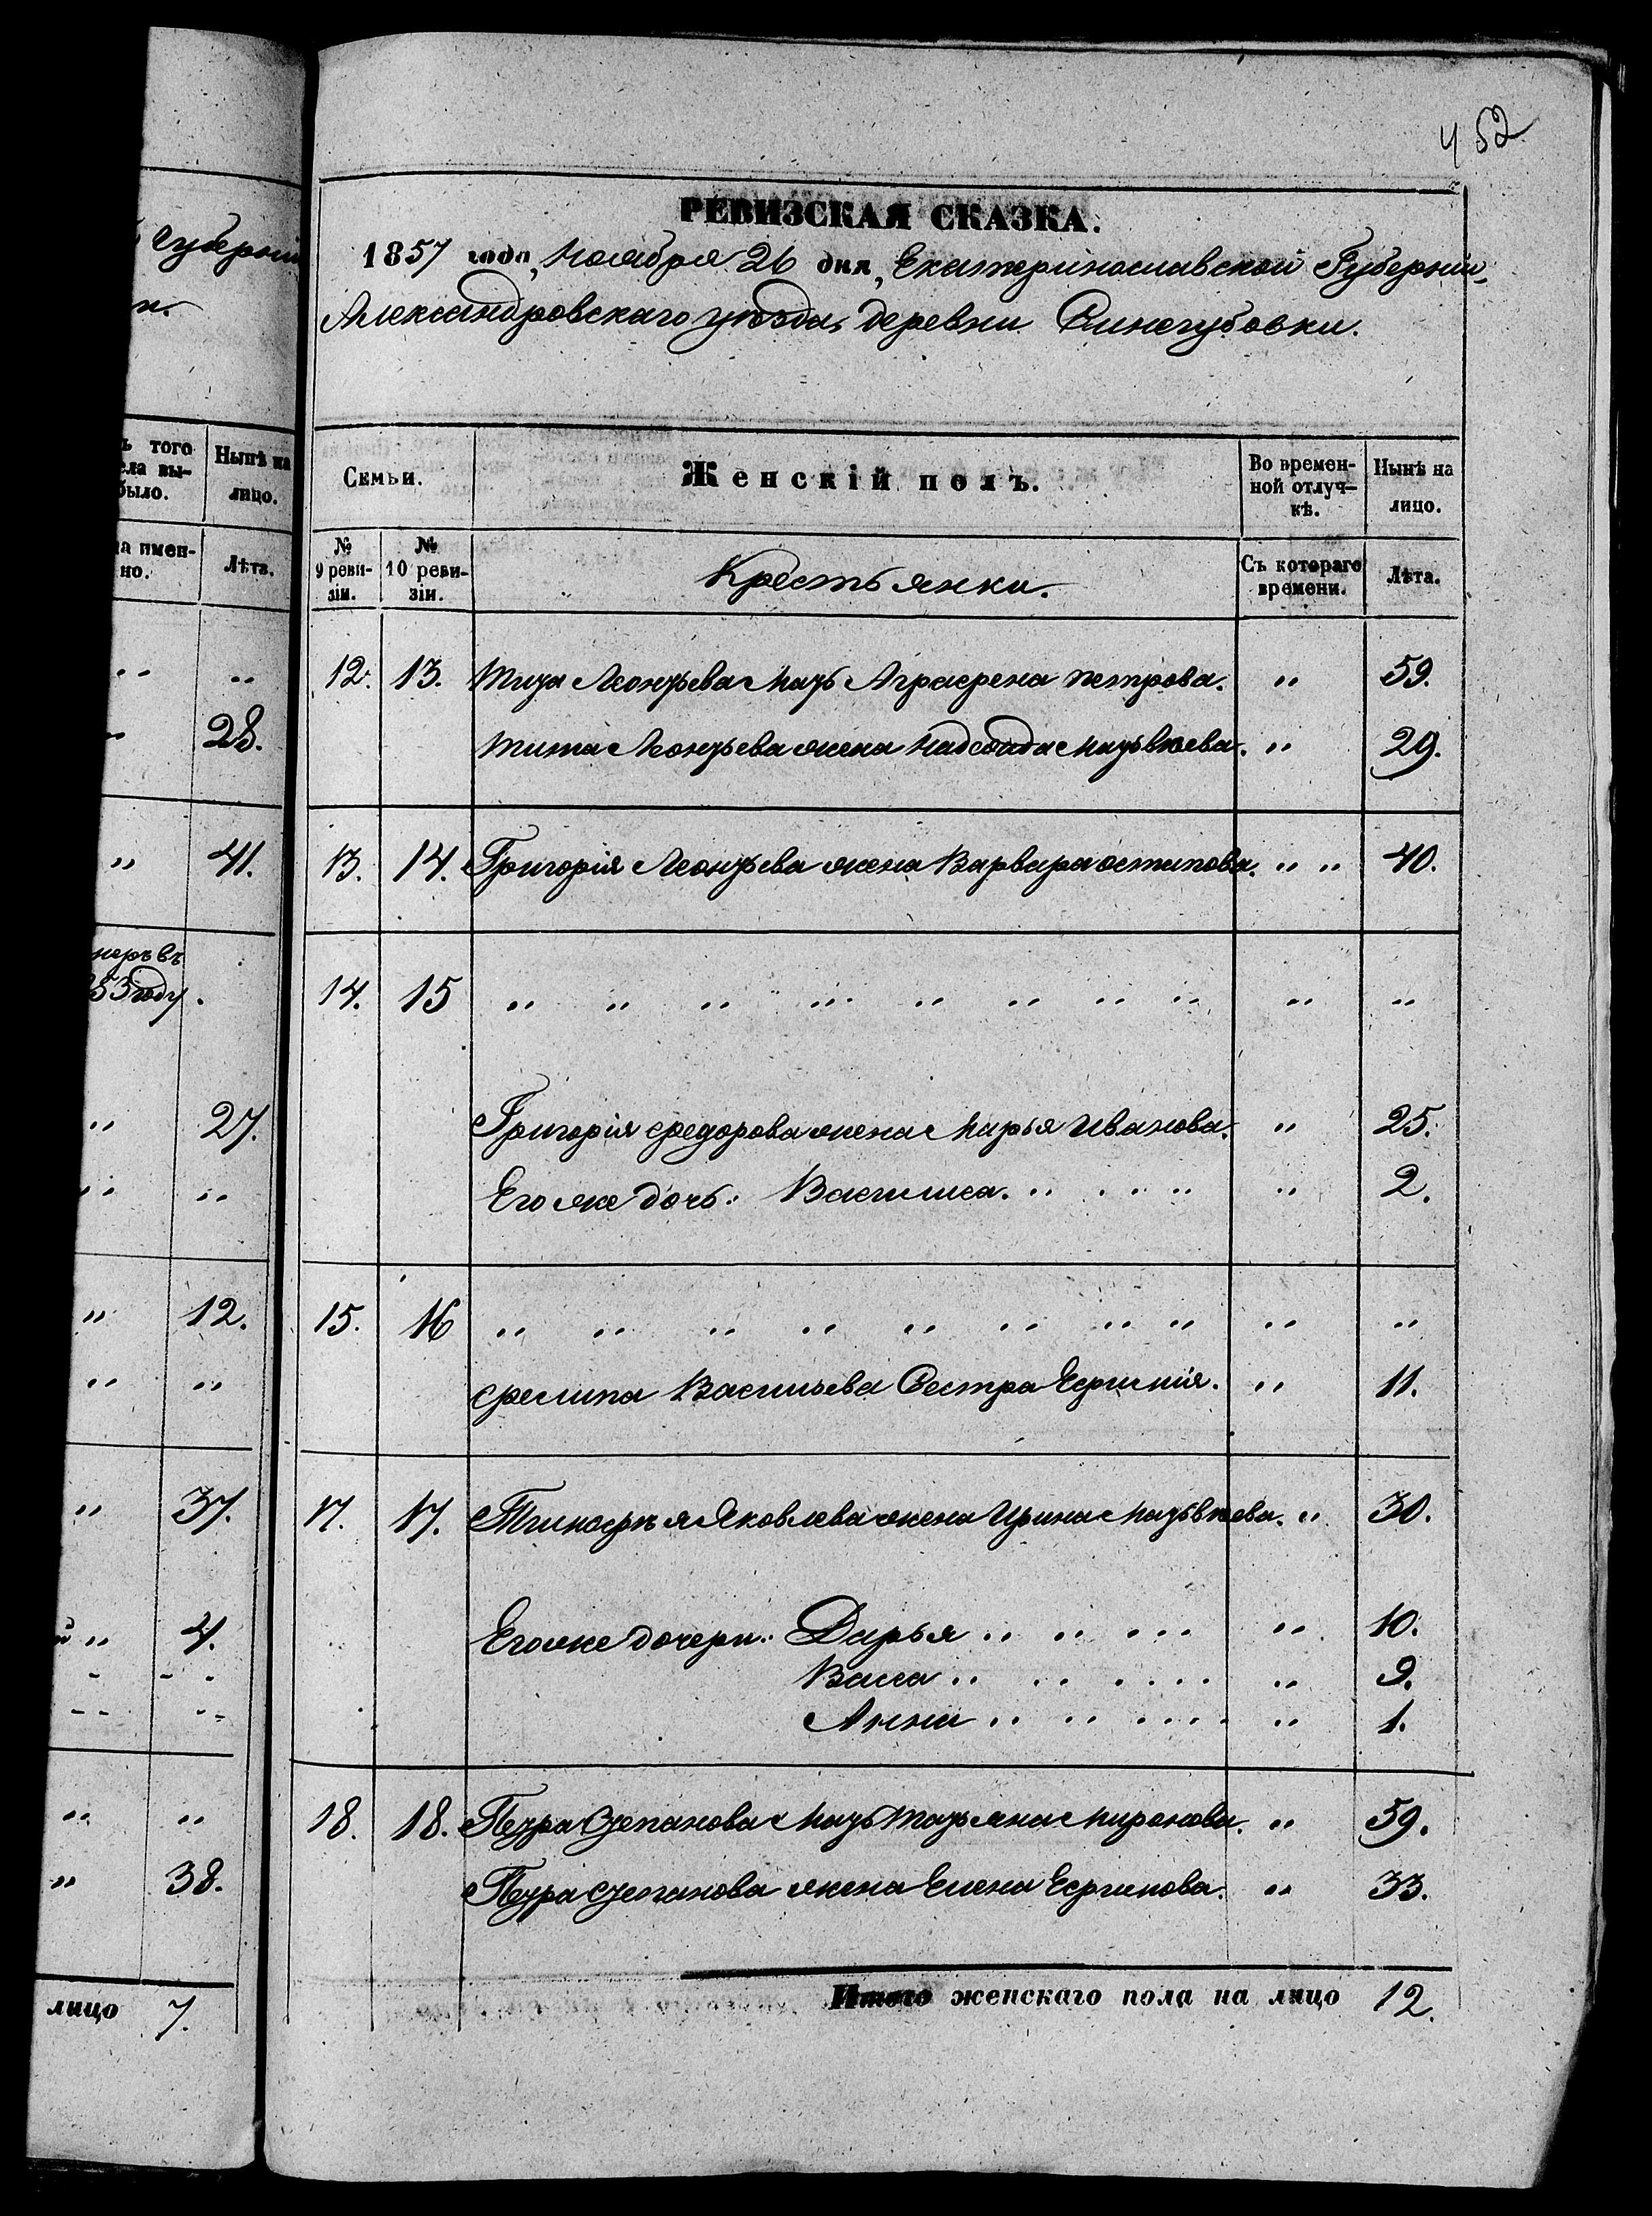 452
губерніи
РЕВИЗСКАЯ СКАЗКА.
1857 года, Ноября 26 дня, Екатеринославской Губерніи,
Александровскаго уѣзда, деревни Синегубовки.
ъ того
ела вы-
было.
Нынѣ на
лицо.
на имен-
но.
Лѣта.
Семьи.
Женскій полъ.
Во времен-
ной отлуч-
кѣ.
Нынѣ на
лицо.
№
9 реви-
зіи.
№
10 реви-
зіи.
Крестьянки.
Съ котораго
времени.
Лѣта.
„ „
12. 13. Тита Леонтьева мать Аграфена Петрова. „ 59.
„ 28.
Тита Леонтьева жена Матвѣева. „ 29.
„ 41.
13. 14. Григорія Леонтьева жена Варвара Остапова. „ „ 40.
меръ въ
853 году.
14. 15 „ „ „ „ „ „ „ „ „ „
„ 27.
Григорія Федорова жена Марья Иванова. „ 25.
„ „
Его же дочь: Василиса. „ „ „ „ 2.
„ 12.
15. 16 „ „ „ „ „ „ „ „ „ „
„ „
Филипа Васильева Сестра Ефимія. „ 11.
„ 37.
17. 17. Тимофѣя Яковлева жена Ирина Матвѣева. „ 30.
„ 4.
Его же дочери: Дарья „ „ „ „ 10.
Васса „ „ „ „ 9.
Анна „ „ „ „ 1.
„ „
18. 18. Петра Степанова мать Татьяна Миронова. „ 59.
„ 38.
Петра Степанова жена Елена Ефимова. „ 33.
лицо 7.
Итого женскаго пола на лицо 12.